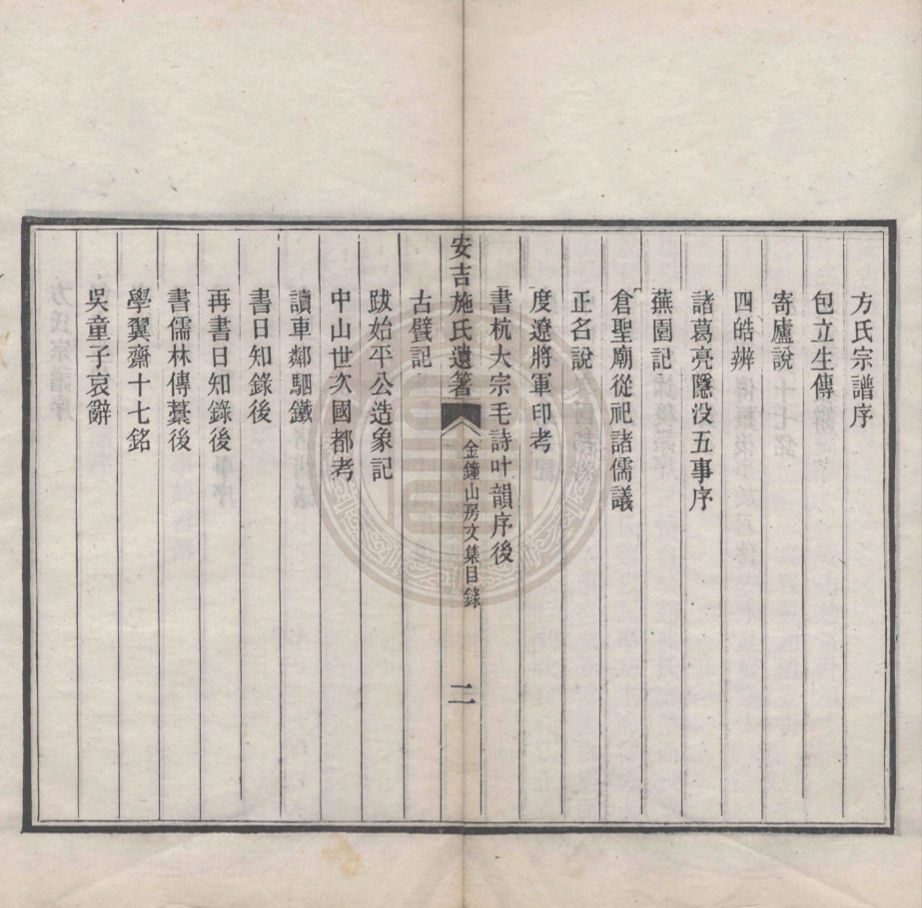 方氏宗譜序
包立生傳
寄廬說
四皓辨
諸葛亮隱没五事序
蕪園記
倉聖廟從祀諸儒議
正名說
度遼將軍印考
書杭大宗毛詩叶韻序後
安吉施氏遺著
金鐘山房文集目錄
二
古甓記
跋始平公造象記
中山世次國都考
讀車鄰駟鐵
書日知錄後
再書日知錄後
書儒林傳藁後
學翼齋十七銘
吳童子哀辭